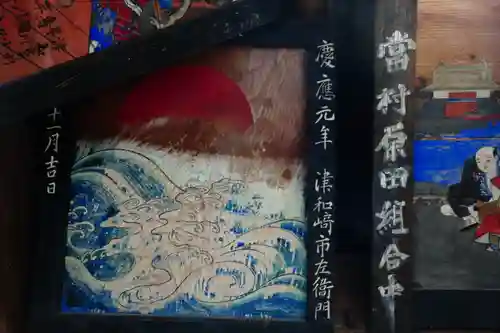 當村原田組合中
慶應元年 津和崎市左衛門
十一月吉日